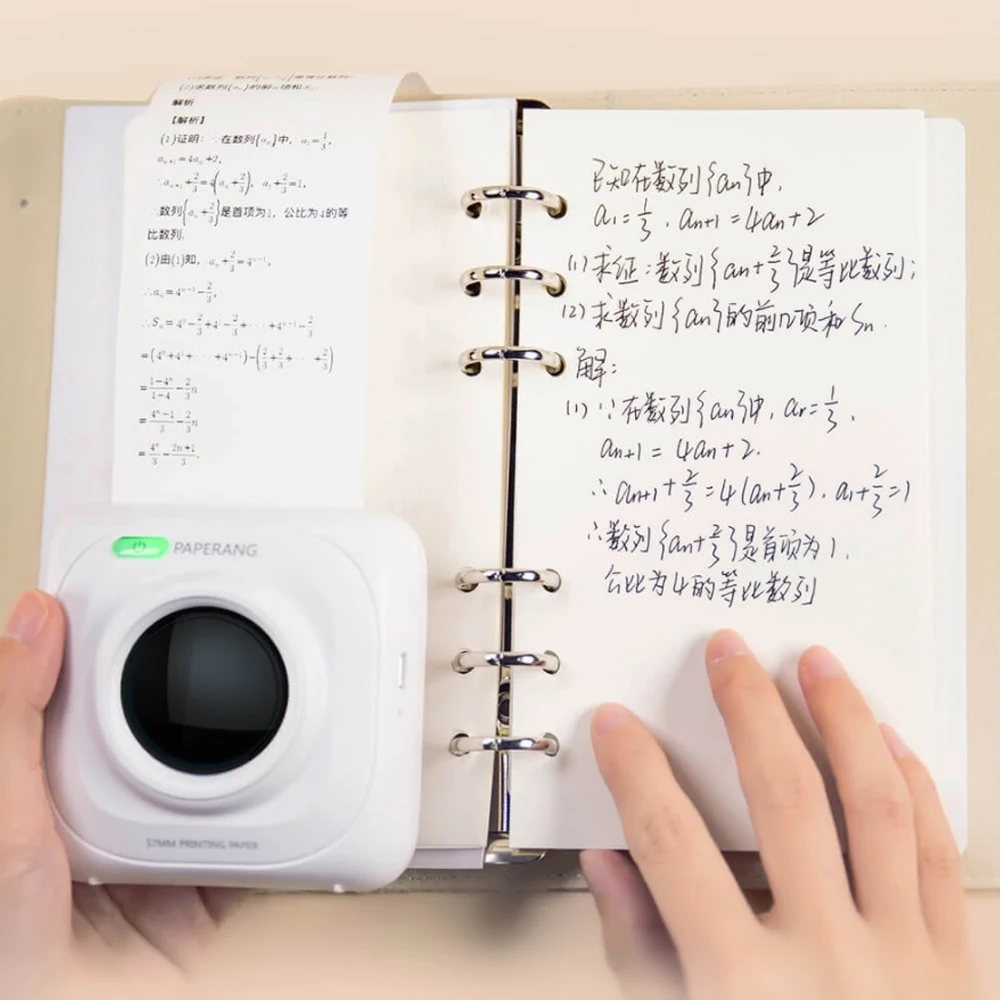 (2)求数列{aₙ}的前n项和Sₙ.
解析
【解析】
(1)证明：∵在数列{aₙ}中，a₁=1/3，
aₙ₊₁=4aₙ+2，
∴aₙ₊₁+2/3=4(aₙ+2/3)，a₁+2/3=1，
∴数列{aₙ+2/3}是首项为1，公比为4的等
比数列.
(2)由(1)知，aₙ+2/3=4ⁿ⁻¹，
∴aₙ=4ⁿ⁻¹-2/3，
∴Sₙ=4⁰-2/3+4¹-2/3+···+4ⁿ⁻¹-2/3
=(4⁰+4¹+···+4ⁿ⁻¹)-(2/3+2/3+···+2/3)
=(1-4ⁿ)/(1-4)-2/3n
=(4ⁿ-1)/3-2/3n
=4ⁿ/3-(2n+1)/3.
PAPERANG
57MM PRINTING PAPER
已知在数列{an}中,
a₁=1/3, an+1=4an+2
(1)求证:数列{an+2/3}是等比数列;
(2)求数列{an}的前n项和Sn.
解:
(1)∵在数列{an}中, a₁=1/3,
an+1=4an+2.
∴an+1+2/3=4(an+2/3), a₁+2/3=1
∴数列{an+2/3}是首项为1,
公比为4的等比数列